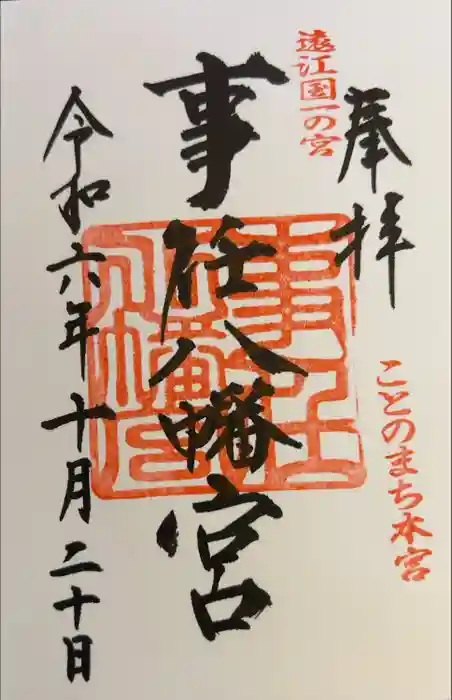 奉拝
ことのまち本宮
遠江国一の宮
事任八幡宮
令和六年十月二十日